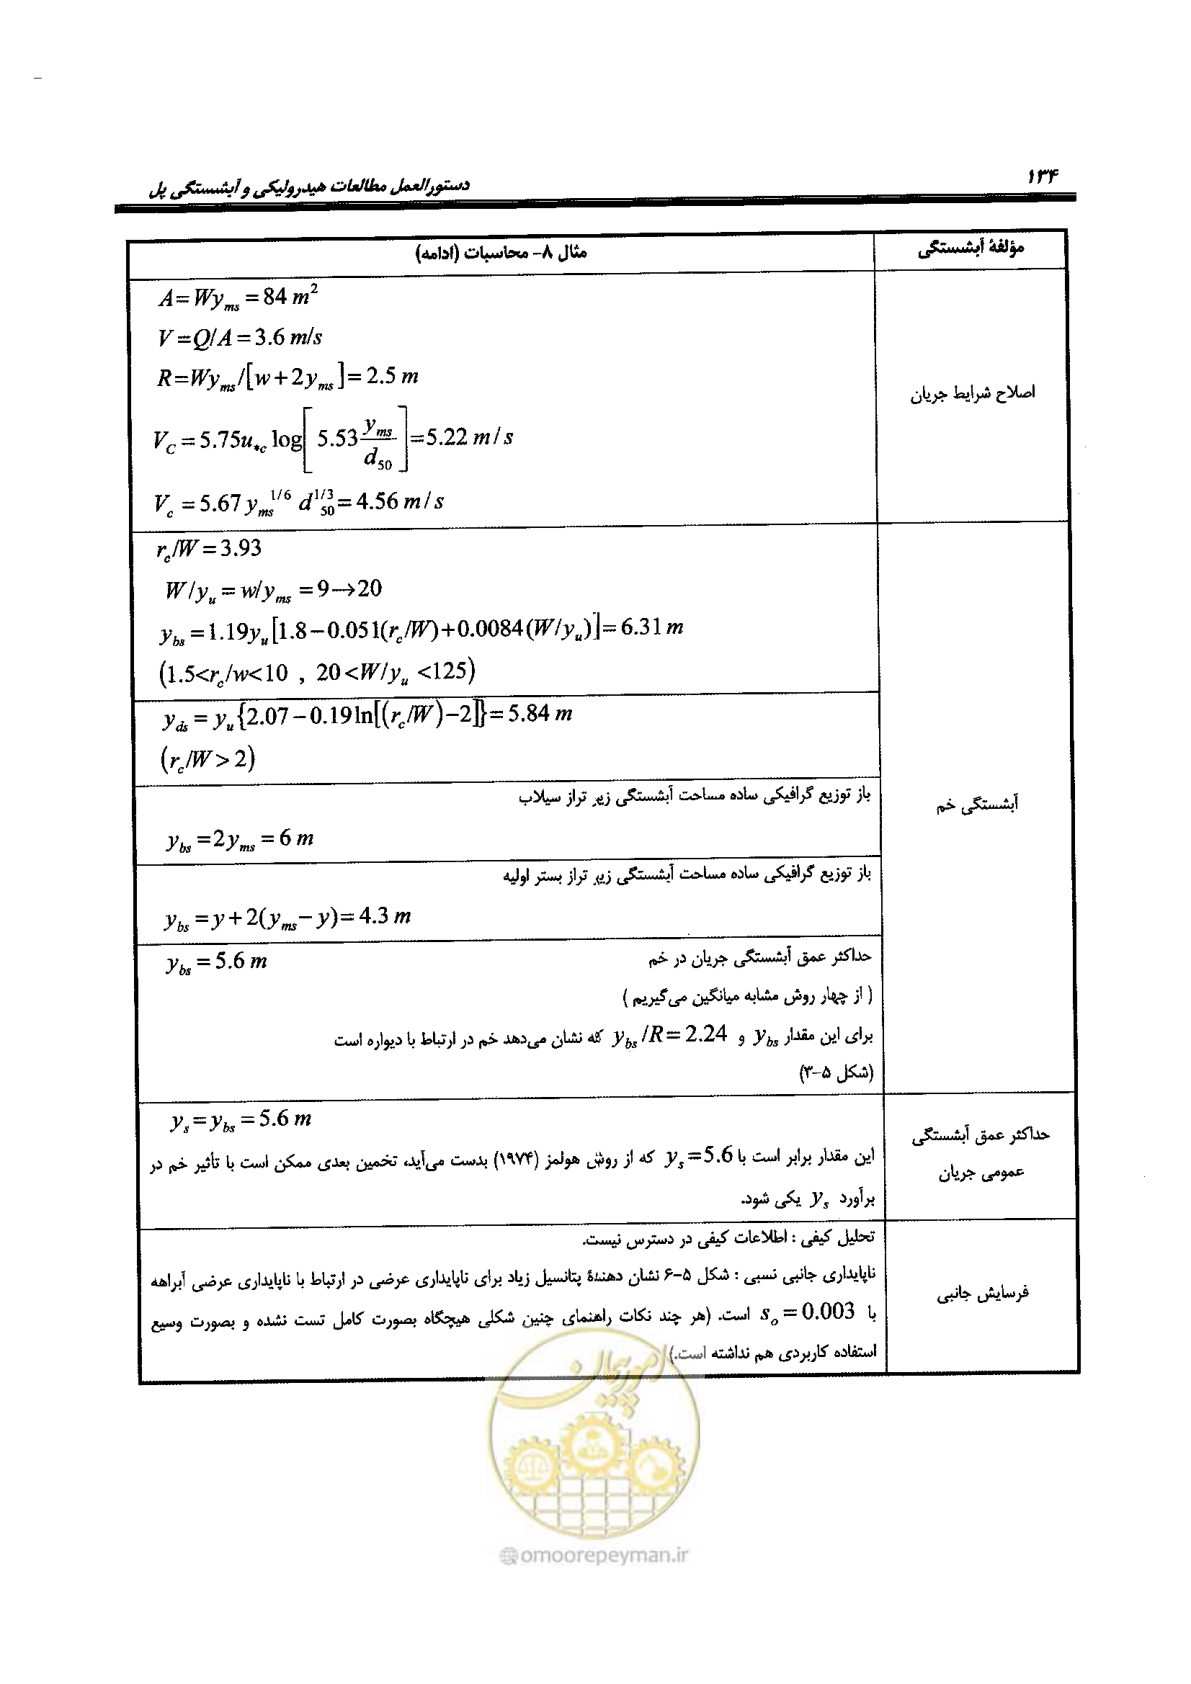 ۱۳۴
دستورالعمل مطالعات هیدرولیکی و آبشستگی پل
مؤلفهٔ آبشستگی
مثال ۸- محاسبات (ادامه)
اصلاح شرایط جریان
A=Wy_ms = 84 m^2
V=Q/A = 3.6 m/s
R=Wy_ms/[w+2y_ms] = 2.5 m
V_C = 5.75u_*c log[5.53 y_ms/d_50] = 5.22 m/s
V_c = 5.67 y_ms^1/6 d_50^1/3 = 4.56 m/s
آبشستگی خم
r_c/W = 3.93
W/y_u = w/y_ms = 9→20
y_bs = 1.19y_u[1.8−0.051(r_c/W)+0.0084(W/y_u)] = 6.31 m
(1.5<r_c/w<10 , 20<W/y_u <125)
y_ds = y_u{2.07−0.19ln[(r_c/W)−2]} = 5.84 m
(r_c/W > 2)
باز توزیع گرافیکی ساده مساحت آبشستگی زیر تراز سیلاب
y_bs = 2y_ms = 6 m
باز توزیع گرافیکی ساده مساحت آبشستگی زیر تراز بستر اولیه
y_bs = y+2(y_ms−y) = 4.3 m
حداکثر عمق آبشستگی جریان در خم y_bs = 5.6 m
( از چهار روش مشابه میانگین می‌گیریم )
برای این مقدار y_bs و y_bs/R = 2.24 که نشان می‌دهد خم در ارتباط با دیواره است
(شکل ۵-۳)
حداکثر عمق آبشستگی
عمومی جریان
y_s = y_bs = 5.6 m
این مقدار برابر است با y_s=5.6 که از روش هولمز (۱۹۷۴) بدست می‌آید، تخمین بعدی ممکن است با تأثیر خم در
برآورد y_s یکی شود.
فرسایش جانبی
تحلیل کیفی : اطلاعات کیفی در دسترس نیست.
ناپایداری جانبی نسبی : شکل ۵-۶ نشان دهندهٔ پتانسیل زیاد برای ناپایداری عرضی در ارتباط با ناپایداری عرضی آبراهه
با s_o = 0.003 است. (هر چند نکات راهنمای چنین شکلی هیچگاه بصورت کامل تست نشده و بصورت وسیع
استفاده کاربردی هم نداشته است.)
امور پیمان
@omoorepeyman.ir